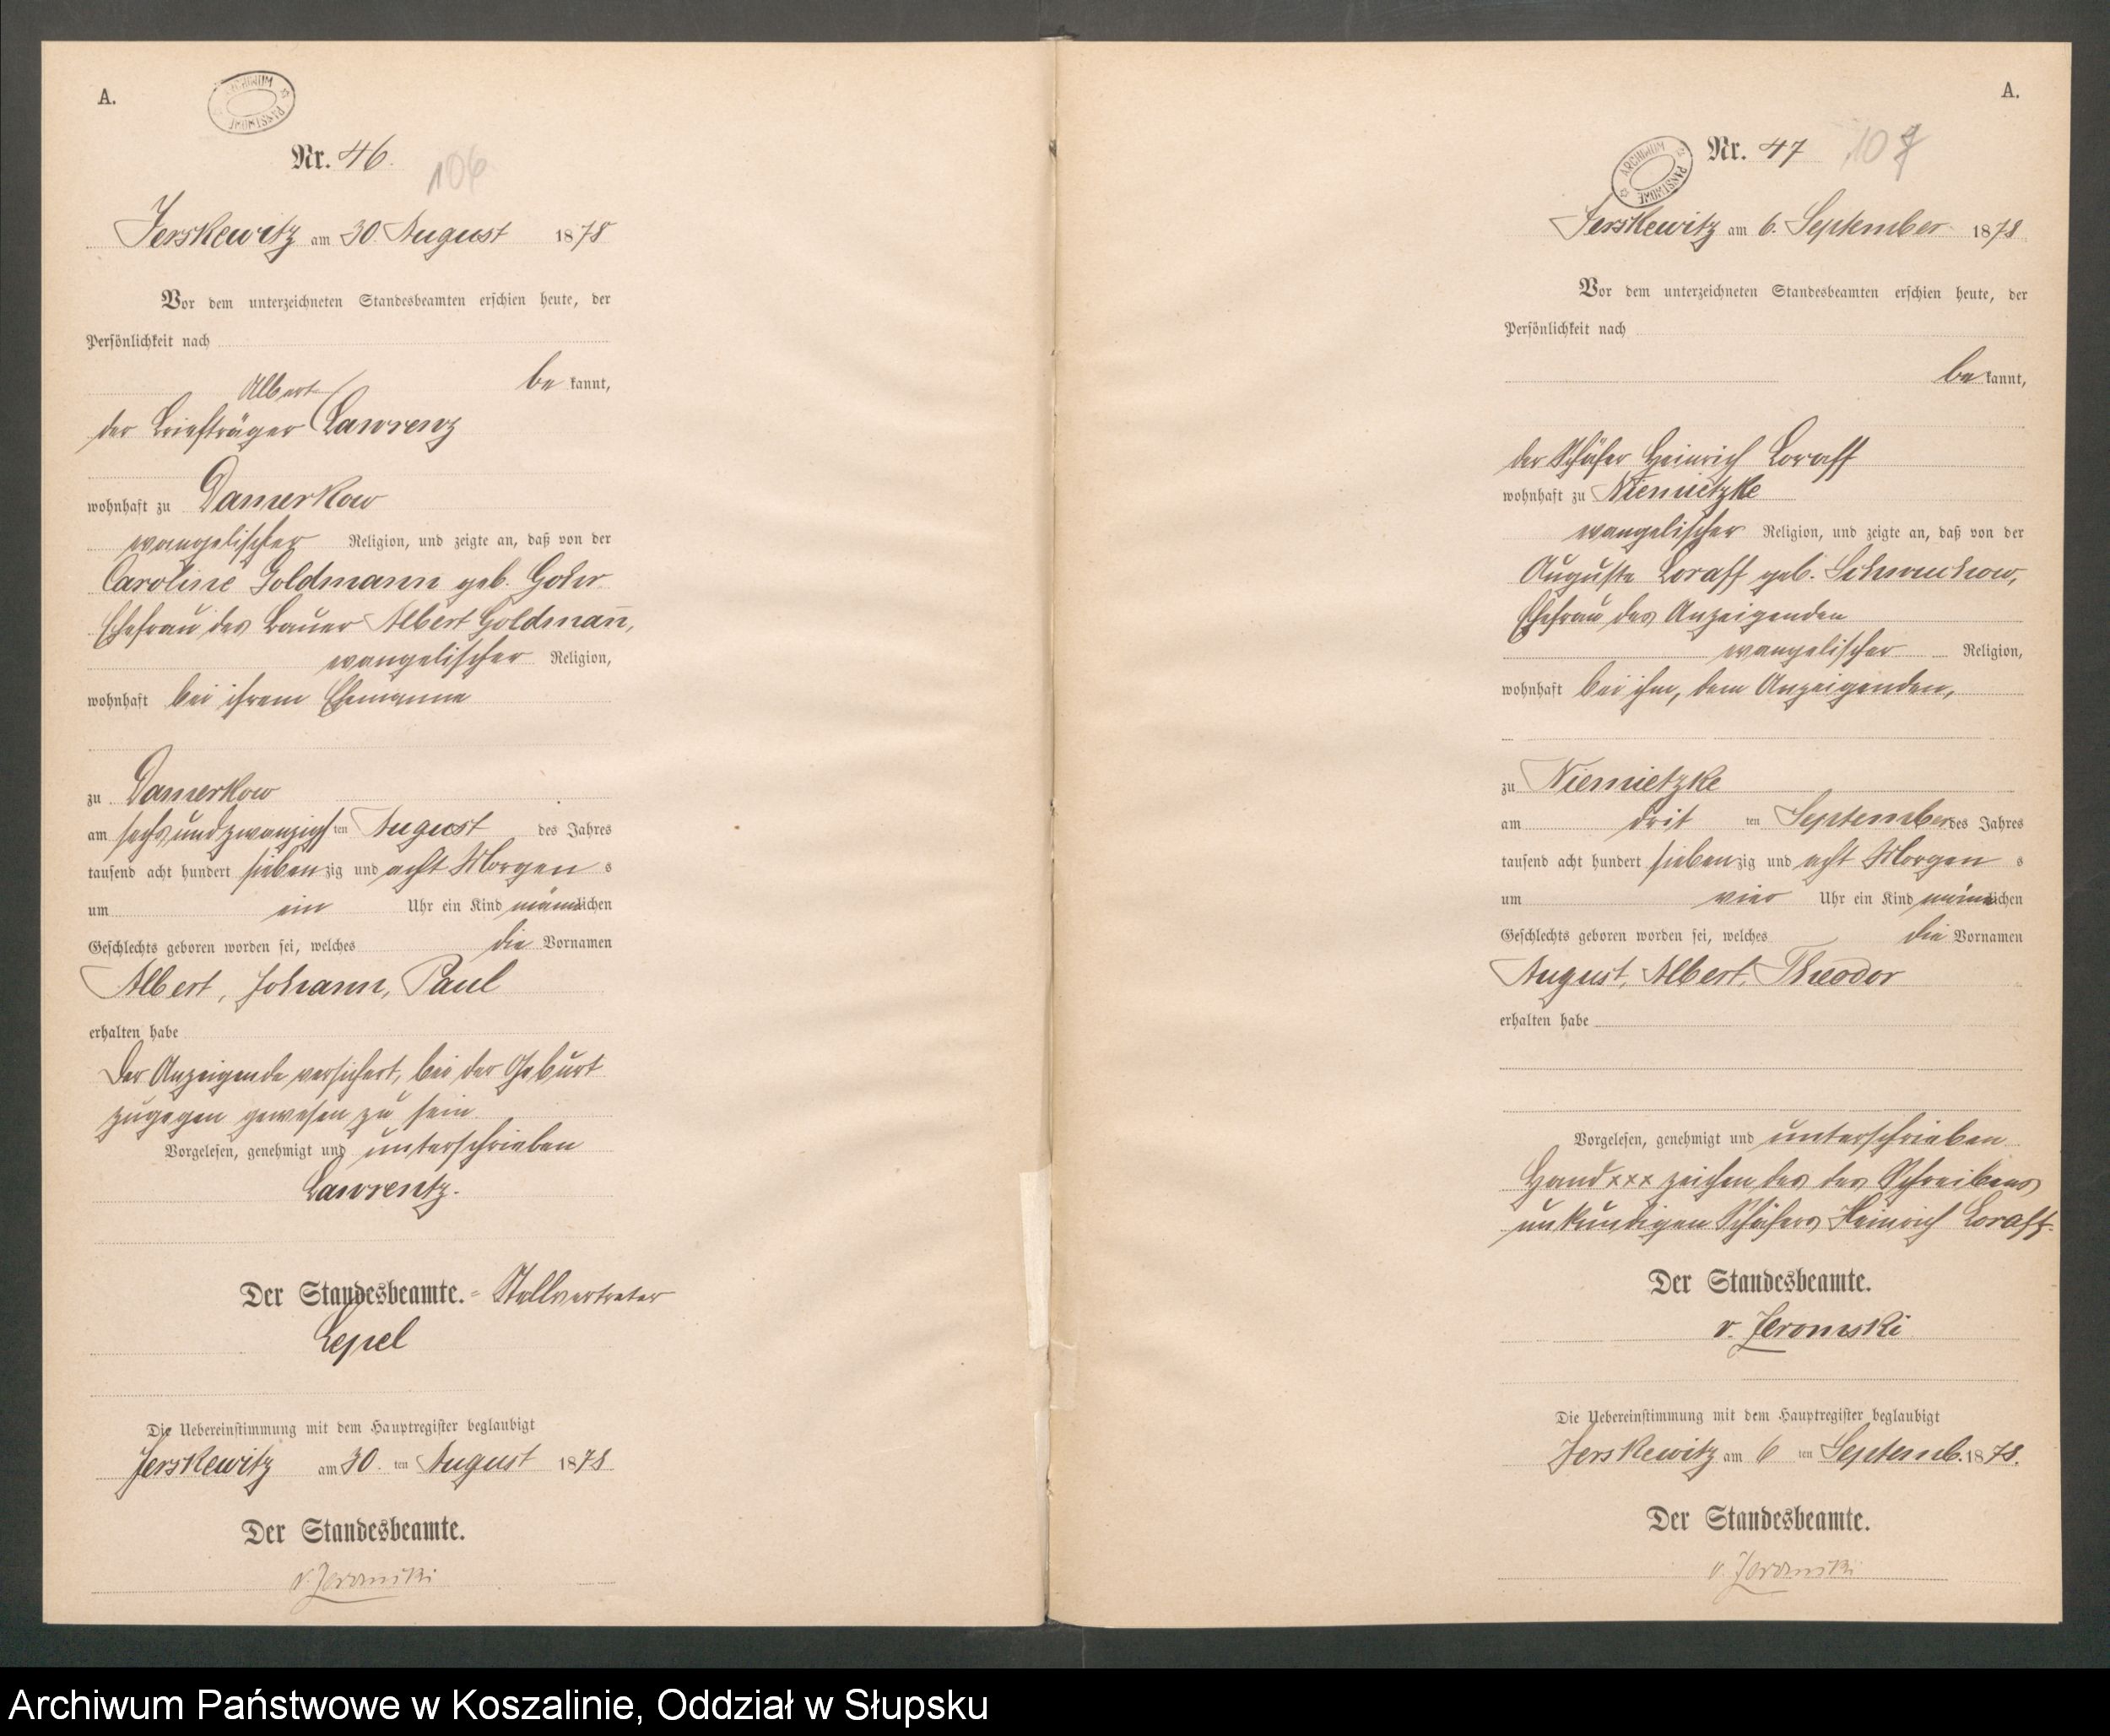 A.
ARCHIWUM PAŃSTWOWE
Nr. 46.
106
Jerskewitz am 30. August 1878
Vor dem unterzeichneten Standesbeamten erschien heute, der
Persönlichkeit nach
Albert
be kannt,
der Briefträger Lawrenz
wohnhaft zu Damerkow
evangelischer Religion, und zeigte an, daß von der
Caroline Goldmann geb.
Ehefrau des Bauer Albert Goldmann,
evangelischer Religion,
wohnhaft bei ihrem Ehemanne
zu Damerkow
am sechsundzwanzigsten August des Jahres
tausend acht hundert siebenzig und acht Morgens
um ein Uhr ein Kind männlichen
Geschlechts geboren worden sei, welches die Vornamen
Albert, Johann, Paul
erhalten habe
Der Anzeigende versichert, bei der Geburt
zugegen gewesen zu sein
Vorgelesen, genehmigt und unterschrieben
Lawrentz.
Der Standesbeamte. - Stellvertreter
Lepel
Die Uebereinstimmung mit dem Hauptregister beglaubigt
Jerskewitz am 30. ten August 1878
Der Standesbeamte.
v. Jeromski
A.
ARCHIWUM PAŃSTWOWE
Nr. 47
107
Jerskewitz am 6. September 1878
Vor dem unterzeichneten Standesbeamten erschien heute, der
Persönlichkeit nach
be kannt,
der Schäfer Heinrich Loraff
wohnhaft zu Niemietzke
evangelischer Religion, und zeigte an, daß von der
Auguste Loraff geb.
Ehefrau des Anzeigenden
evangelischer Religion,
wohnhaft bei ihm, dem Anzeigenden,
zu Niemietzke
am dritten September des Jahres
tausend acht hundert siebenzig und acht Morgens
um vier Uhr ein Kind männlichen
Geschlechts geboren worden sei, welches die Vornamen
August, Albert, Theodor
erhalten habe
Vorgelesen, genehmigt und unterschrieben
Hand xxx zeichen des des Schreibens
unkundigen Schäfers Heinrich Loraff.
Der Standesbeamte.
v. Jeromski
Die Uebereinstimmung mit dem Hauptregister beglaubigt
Jerskewitz am 6 ten Septemb. 1878.
Der Standesbeamte.
v. Jeromski
Archiwum Państwowe w Koszalinie, Oddział w Słupsku